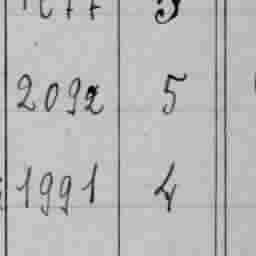 2092 5
1991 4